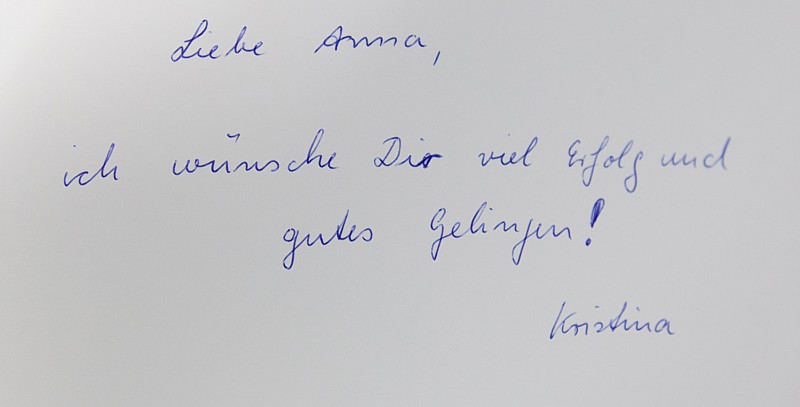 Liebe Anna,
ich wünsche Dir viel Erfolg und
gutes Gelingen!
Kristina